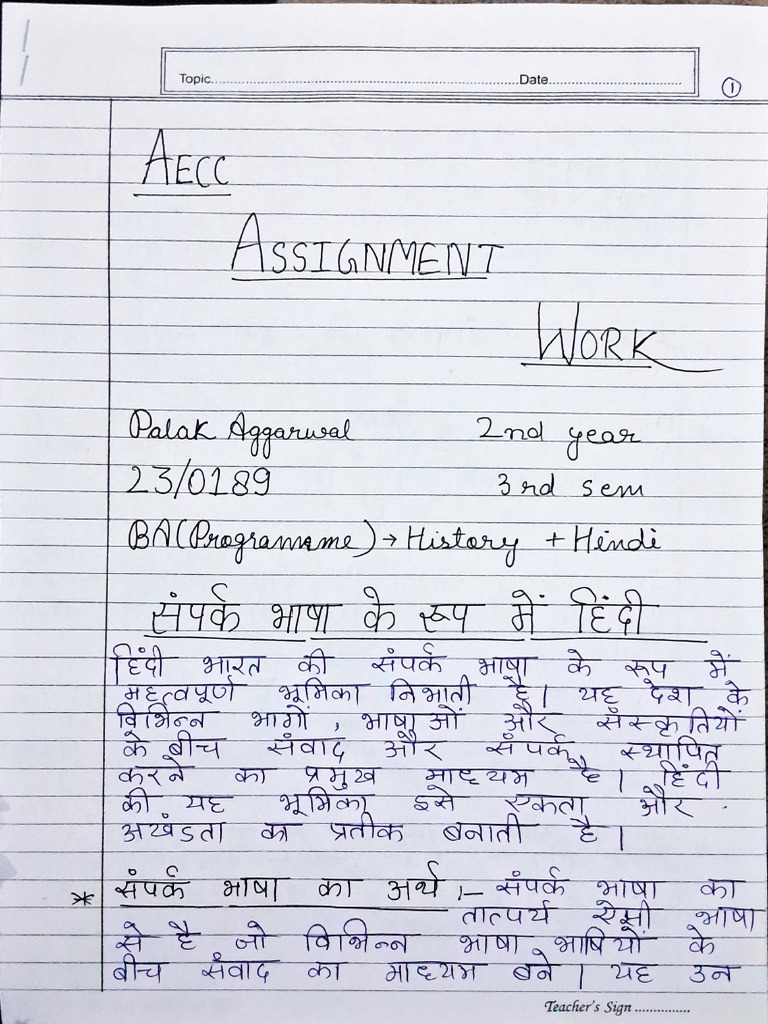 Topic..........Date..........
1
AECC
ASSIGNMENT
WORK
Palak Aggarwal 2nd year
23/0189 3rd sem
BA(Programme) → History + Hindi
संपर्क भाषा के रूप में हिंदी
हिंदी भारत की संपर्क भाषा के रूप में
महत्वपूर्ण भूमिका निभाती है। यह देश के
विभिन्न भागों, भाषाओं और संस्कृतियों
के बीच संवाद और संपर्क स्थापित
करने का प्रमुख माध्यम है। हिंदी
की यह भूमिका इसे एकता और
अखंडता का प्रतीक बनाती है।
* संपर्क भाषा का अर्थ :- संपर्क भाषा का
तात्पर्य ऐसी भाषा
से है जो विभिन्न भाषा भाषियों के
बीच संवाद का माध्यम बने। यह उन
Teacher's Sign ...............